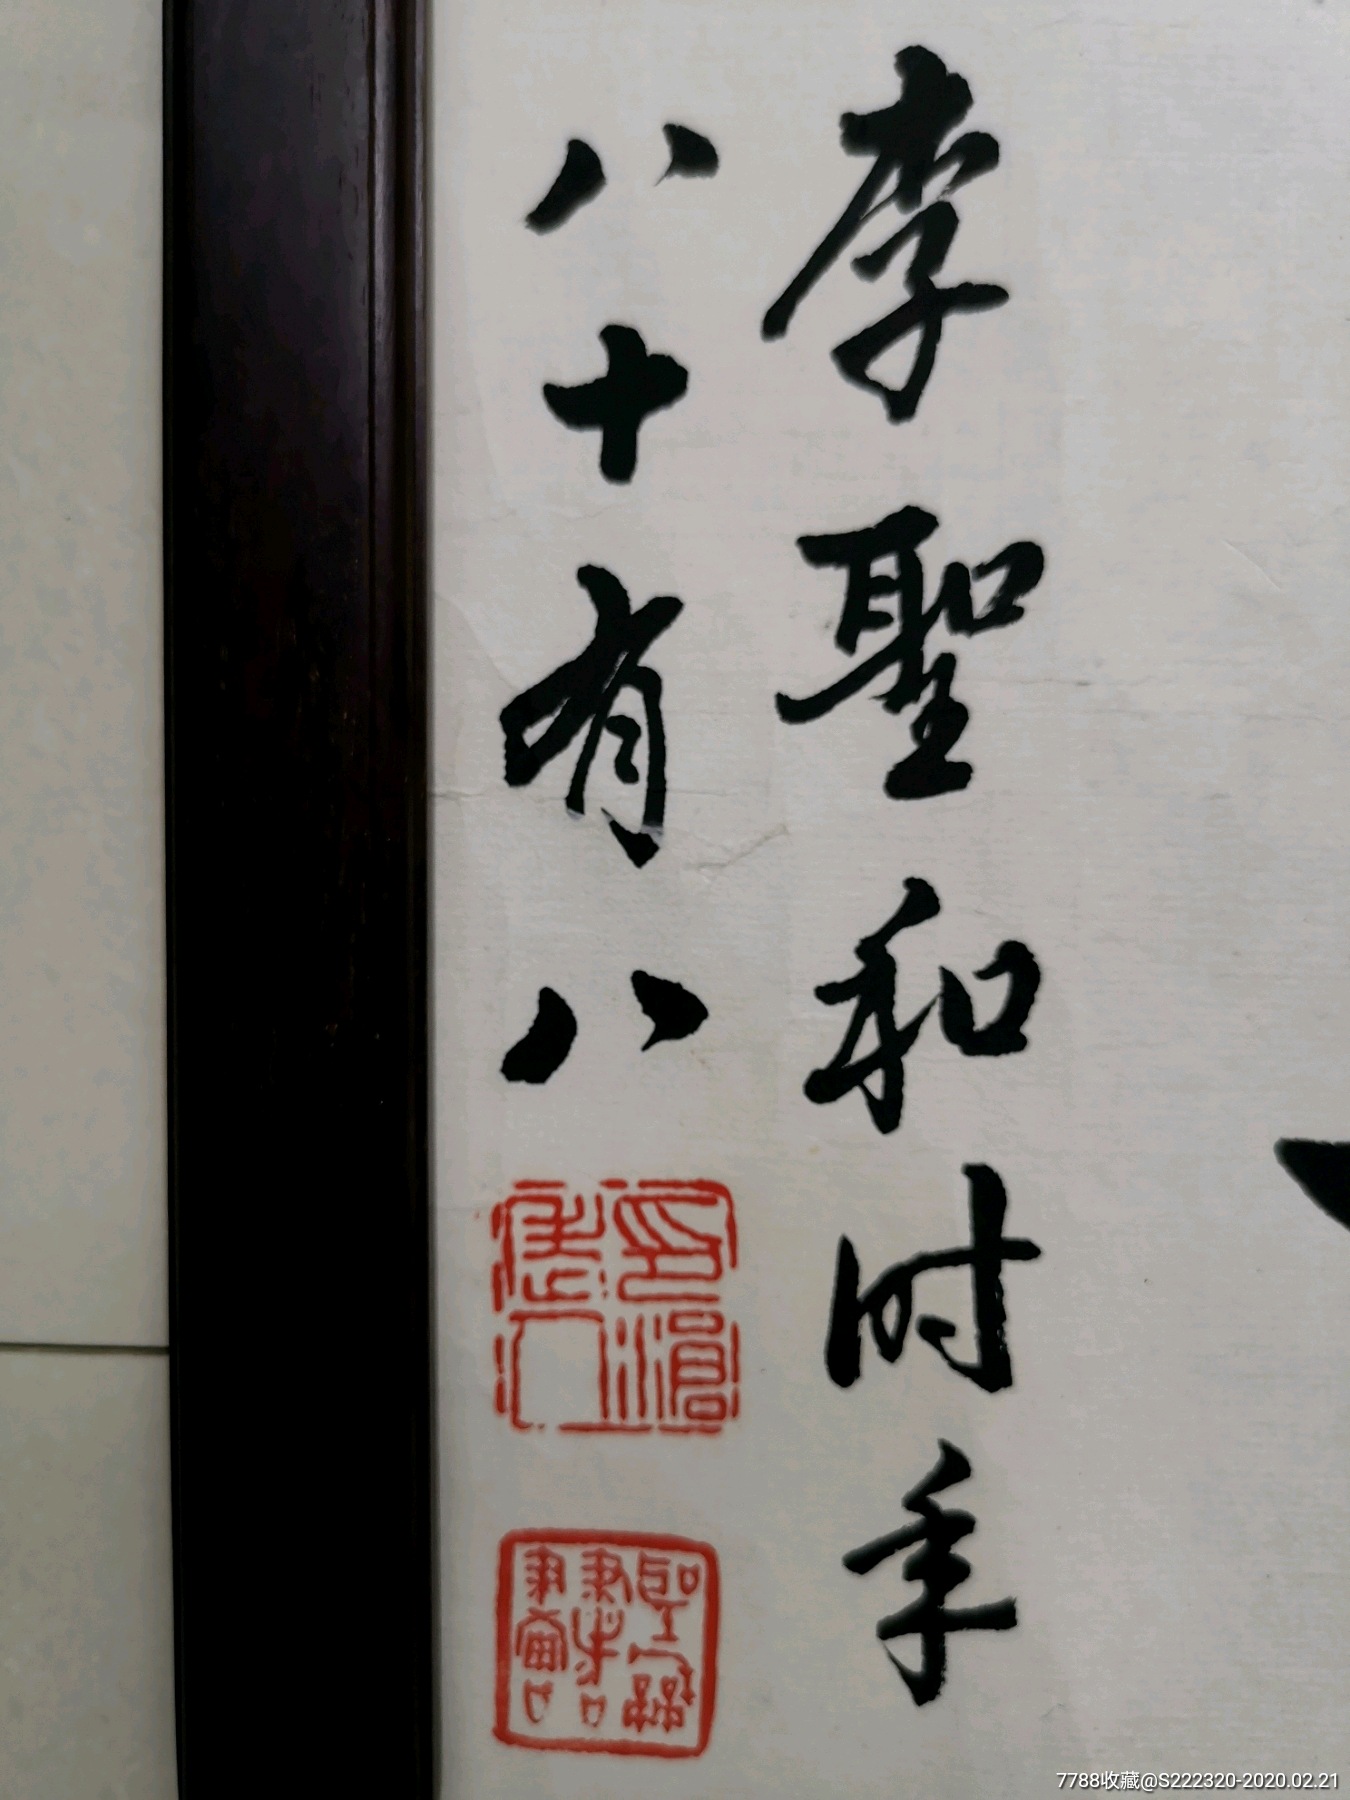 李聖和时年
八十有八
7788收藏@S222320-2020.02.21